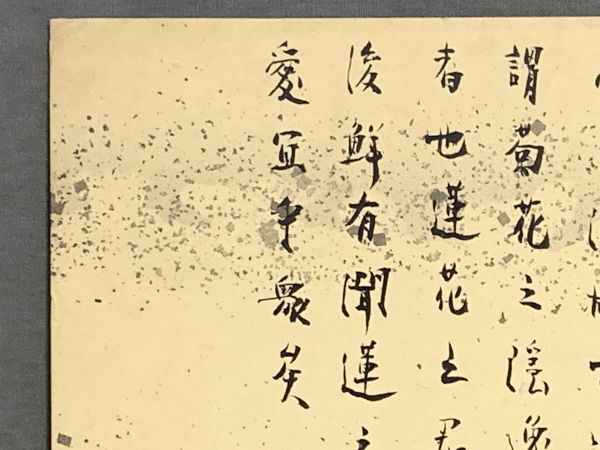 謂菊花之隱逸
者也蓮花之君
後鮮有聞蓮之
愛宜乎衆矣